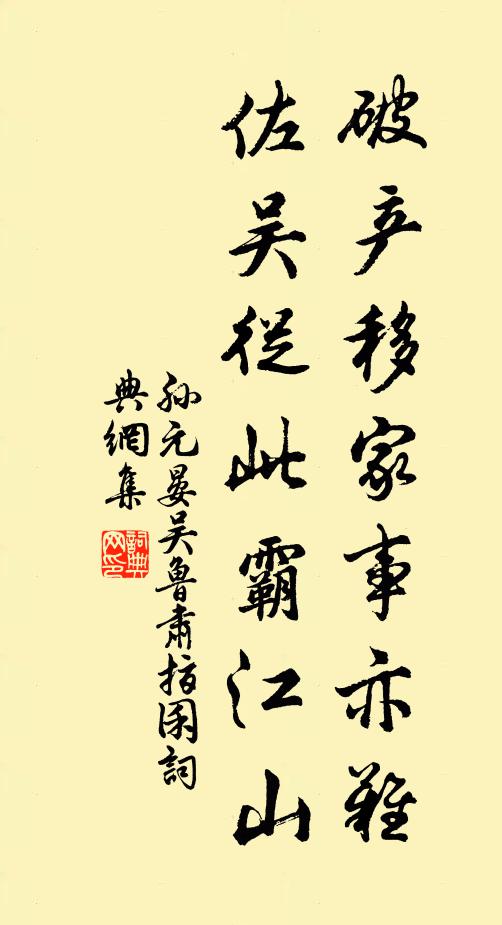 破产移家事亦难
佐吴從此霸江山
孙元晏吴鲁肃指囷詞
典網集
詞典网印